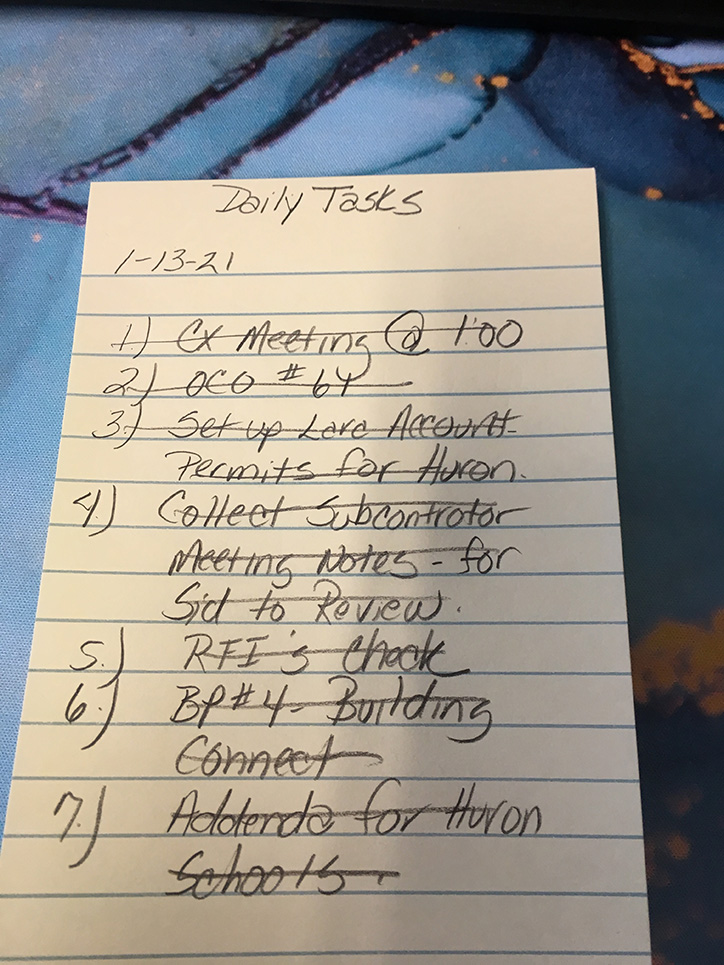 Daily Tasks
1-13-21
1.) CX Meeting @ 1:00
2.) OCO #64
3.) Set up Lara Account-
Permits for Huron.
4.) Collect Subcontrotor
Meeting Notes - for
Sid to Review.
5.) RFI's Check
6.) BP#4- Building
Connect
7.) Addenda for Huron
Schools.